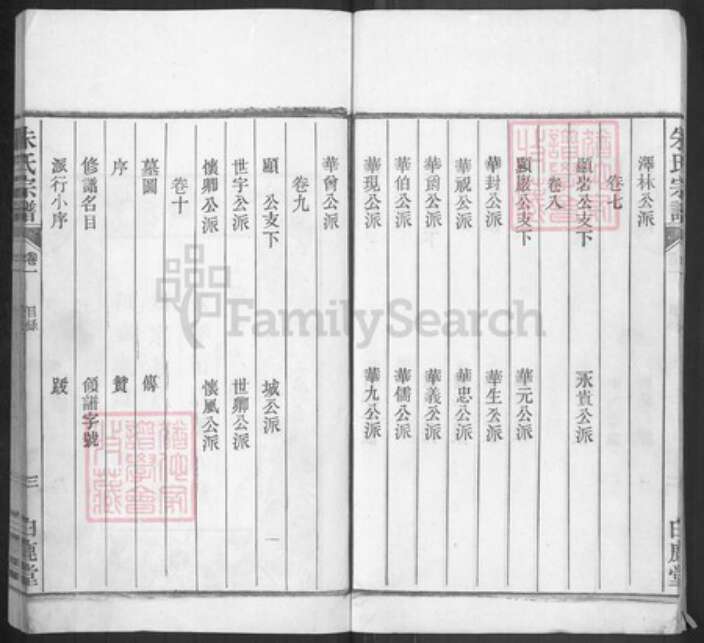 朱氏宗譜
白鹿堂
澤林公派
卷七
顯岩公支下 永貴公派
卷八
顯嚴公支下 華元公派
華封公派 華生公派
華祝公派 華忠公派
華爵公派 華義公派
華伯公派 華儒公派
華現公派 華九公派
華曾公派
卷九
顯 公支下 城公派
世宇公派 世卿公派
懷卿公派 懷風公派
卷十
墓圖 傳
序 贊
修譜名目 領譜字號
派行小序 跋
朱氏宗譜 卷一 目錄 三 白鹿堂
FamilySearch